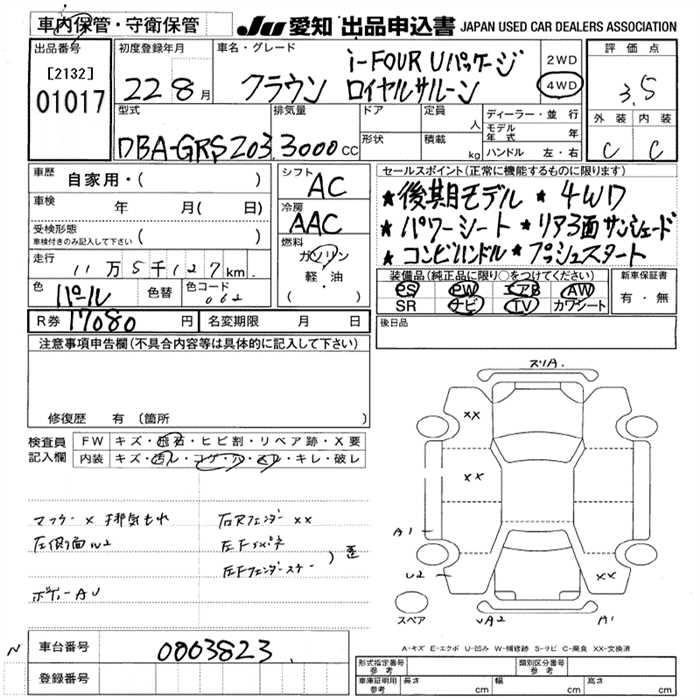 車内保管・守衛保管
JU 愛知 出品申込書 JAPAN USED CAR DEALERS ASSOCIATION
出品番号
[2132]
01017
初度登録年月
22 8月
車名・グレード
i-FOUR Uパッケージ
クラウン ロイヤルサルーン
2WD
4WD
評価点
3.5
外装 内装
C C
型式
DBA-GRS203
排気量
3000cc
ドア
形状
定員
人
積載
kg
ディーラー・並行
モデル年式 年
ハンドル 左・右
車歴
自家用・( )
車検
年 月( 日)
受検形態
車検付きのみ記入して下さい ( )
走行
11万5千127km
色
パール
色替
色コード
062
シフト
AC
冷房
AAC
燃料
ガソリン
軽・油
( )
セールスポイント(正常に機能するものに限ります)
★後期モデル ★4WD
★パワーシート ★リア3面サンシェード
★コンビハンドル ★プッシュスタート
装備品(純正品に限り○をつけてください)
PS PW エアB AW
SR ナビ TV カワシート
新車保証書
有・無
後日品
R券 17080円
名変期限 月 日
注意事項申告欄(不具合内容等は具体的に記入して下さい)
修復歴 有(箇所 )
検査員
記入欄
FW キズ・飛石・ヒビ割・リペア跡・X要
内装 キズ・汚レ・コゲ・穴・スレ・キレ・破レ
マフラー× 排気もれ
左側面U2
ボディーAU
右Rフェンダー ××
左Fインパネ
左Fフェンダーステー
) 歪
スリA.
××
××
A1
U2
××
スペア
UA2
A1
A-キズ E-エクボ U-凹み W-補修跡 S-サビ C-腐食 XX-交換済
車台番号
0003823
登録番号
N
形式指定番号
参考
類別区分番号
参考
車庫証明用
参考
長さ cm
幅 cm
高さ cm